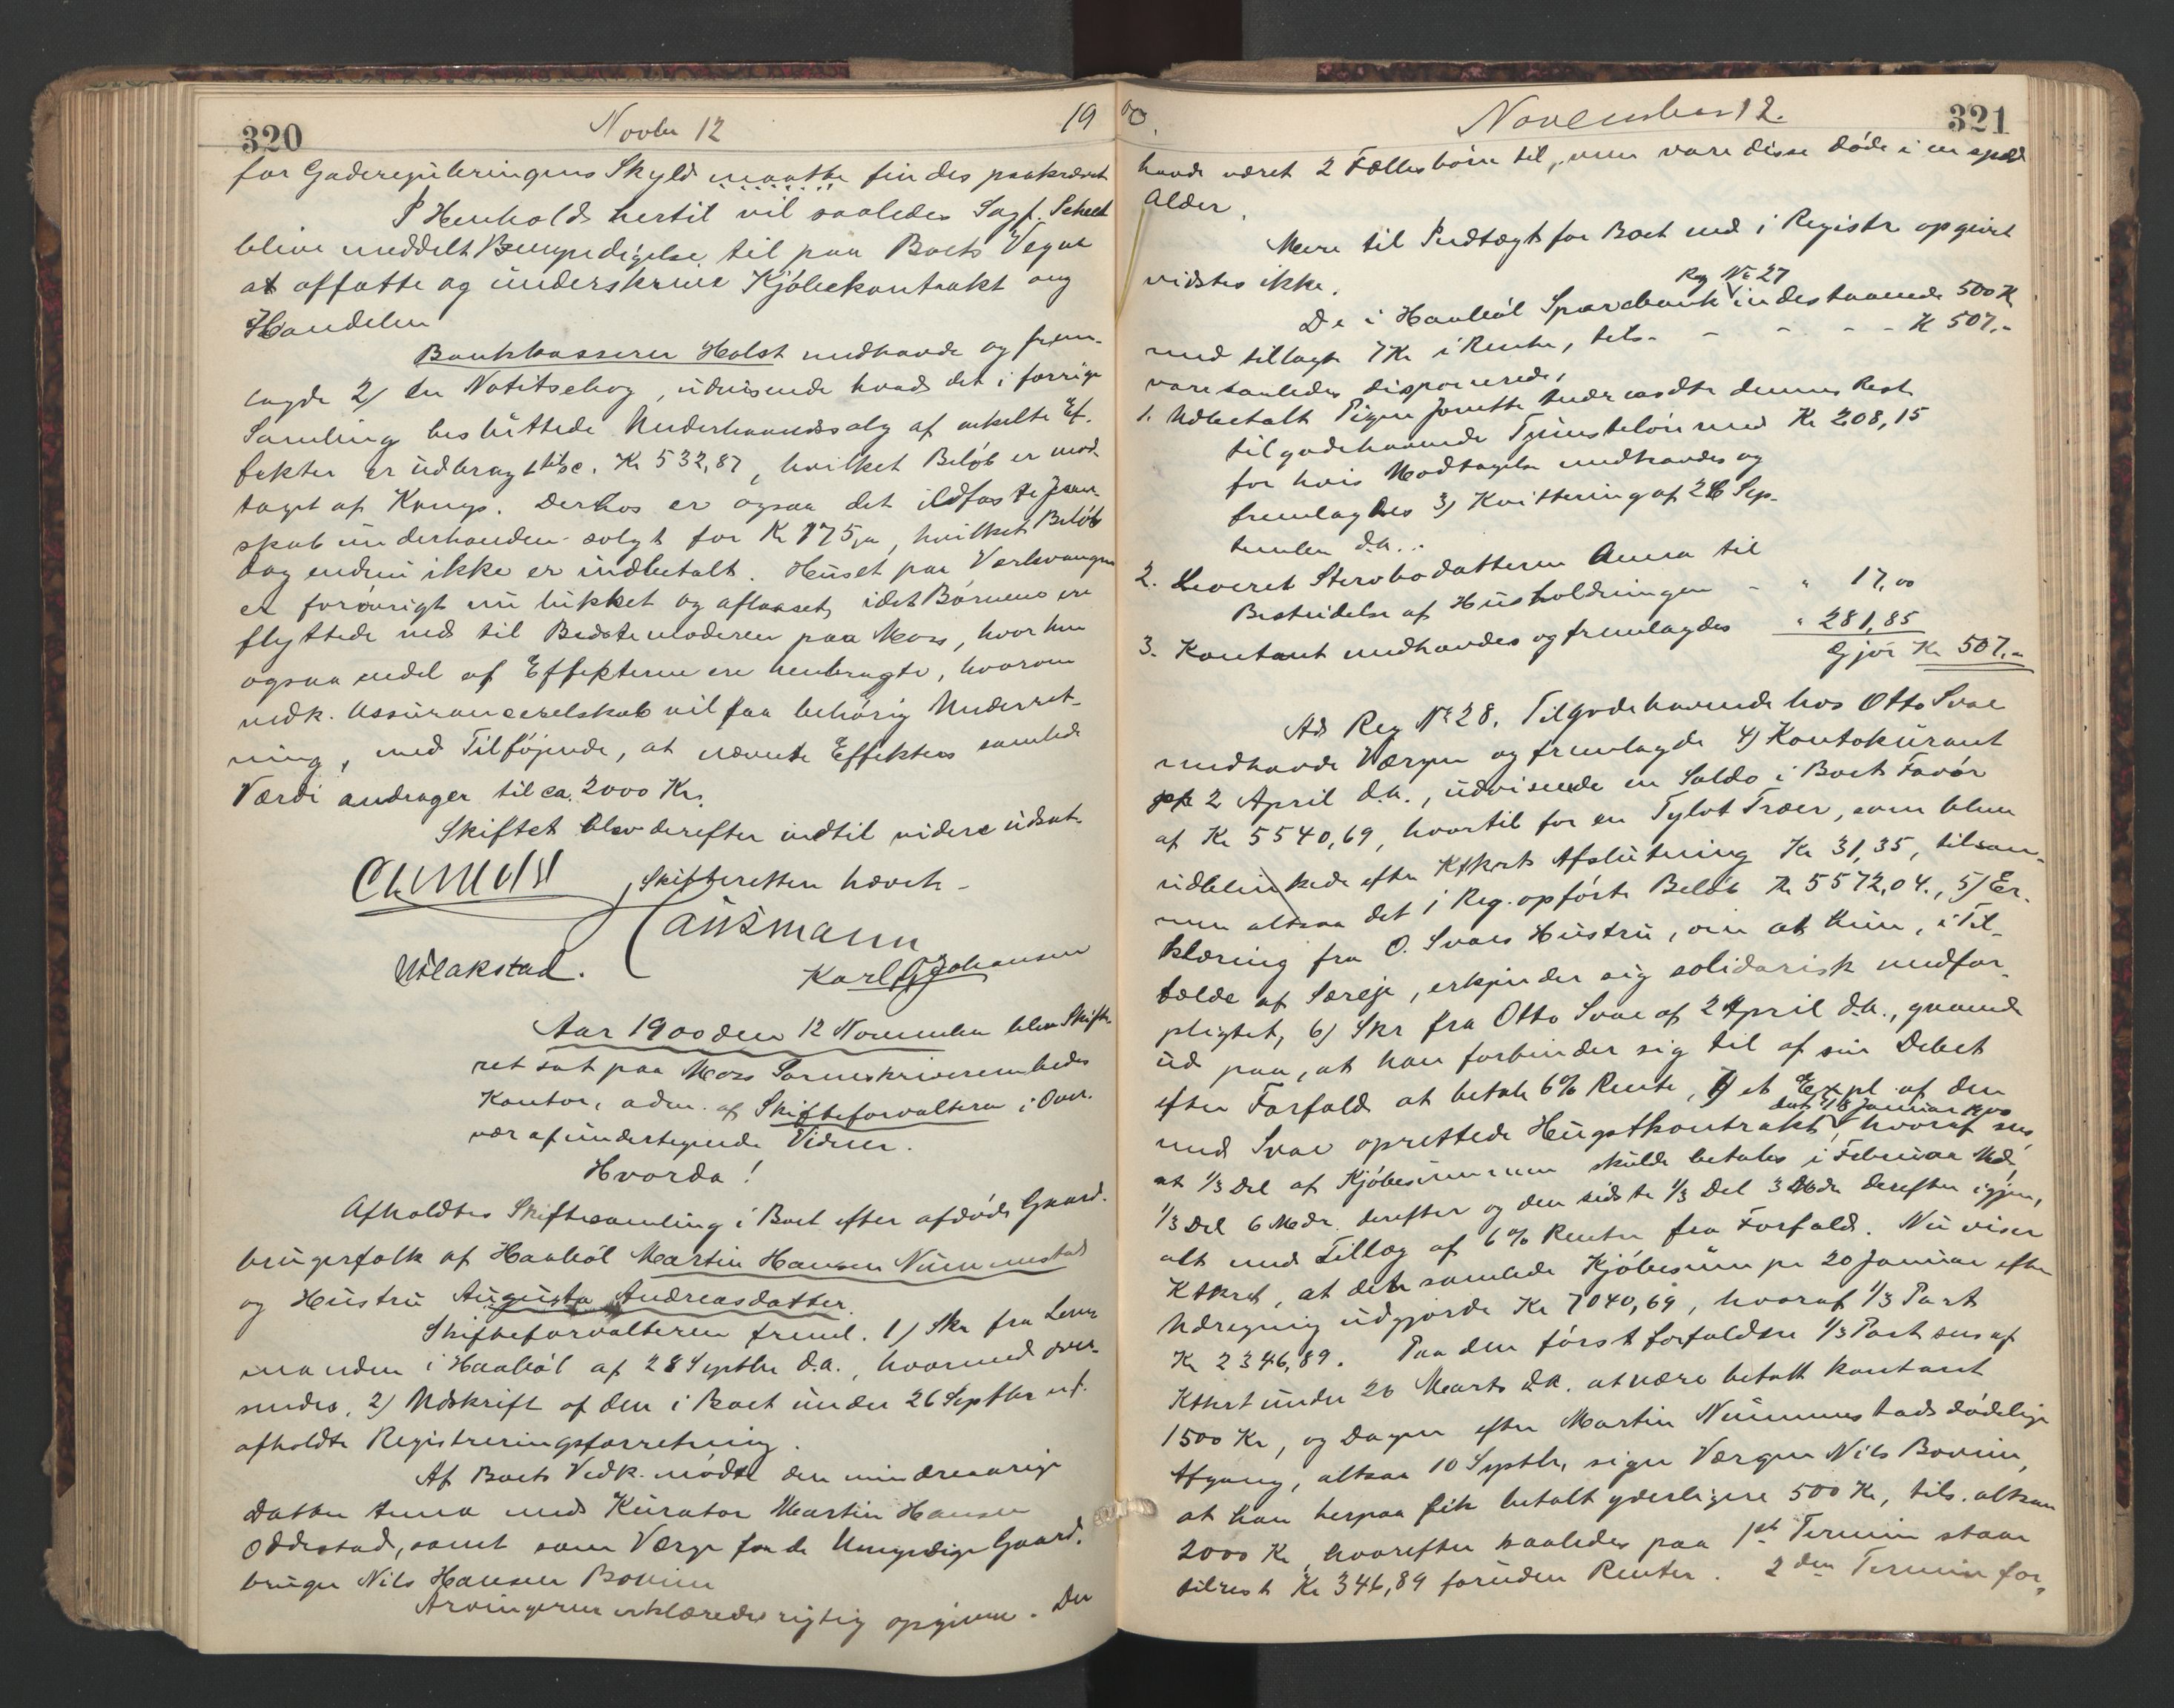 320 Novbr 12 19
for Gaderegüleringens Skyld maatte findes paakrævet
I Henhold hertil vil saaledes Sagf. Scheel
blive meddelt Bemyndigelse til paa Boets Vegne
at affatte og ünderskrive Kjöbekontrakt ang
Handelen
Bankkasserer Holst medhavde og frem-
lagde 2) en Notitsebog, üdvisende hvad det i forrige
Samling beslüttede Underhaandssalg af enkelte Ef-
fekter er üdbragt til, Kr 532,87, hvilket Belöb er mod-
taget af Komp. Derhos er ogsaa det ildfaste Jern-
skab ünderhaanden solgt for Kr 175,00, hvilket Belöb
dog endnü ikke er indbetalt. Hüset paa Verkvangen
er forövrigt nü lükket og aflaaset, idet Börnene ere
flyttede ned til Bedstemoderen paa Moss, hvor hun
ogsaa endel af Effekterne ere henbragte, hvorom
vedk. Assüranceselskab vil faa behörig Underret-
ning, med Tilföjende, at nævnte Effekters samlede
Værdi andrager til ca. 2000 Kr.
Skiftet blev derefter indtil videre üdsat.
Skifteretten hævet -
Laüsmann
Karl G Johansen
Aar 1900 den 12 November blev Skifte
ret sat paa Moss Sorenskriverembedes
Kontor, adm. af Skifteforvalteren i Over-
vær af ündertegnede Vidner.
Hvorda!
Afholdtes Skiftesamling i Boet efter afdöde Gaard-
brügerfolk af Haaböl Martin Hansen Nümmestad
og Hüstrü Augusta Andreasdatter.
Skifteforvalteren freml. 1) Skr fra Lens-
manden i Haaböl af 28 Septbr d.a., hvormed over-
sendes, 2) Udskrift af den i Boet ünder 26 Septbr
afholdte Registreringsforretning.
Af Boets Vedk. mödte den mindreaarige
Datter Anna med Kürator Martin Hansen
Oddestad, samt som Værge for de Umyndige Gaard-
brüger Nils Hansen Bovim
Arvingerne erklæredes rigtig opgivne. Der
00. November 12. 321
havde været 2 Fællesbörn til, men vare disse döde i en spæd
Alder.
Mere til Indtægt for Boet end i Registr opgivet
vidstes ikke.
Reg № 27
De i Haaböl Sparebank indestaaende 500 Kr
med tillagte 7 Kr i Rente, tils. - - - - Kr 507.-
vare saaledes disponerede,
1. Udbetalt Pigen Jonette Andreasdtr dennes Rest
tilgodehavende Tjenestelön med Kr 208,15
for hvis Modtagelse medhavdes og
fremlagdes 3) Kvittering af 26 Sep-
tember d.a..
2. Leveret Stervbodatteren Anna til
Bestridelse af Hüsholdningen - " 17,00
3. Kontant medhavdes og fremlagdes " 281,85
Gjör Kr 507.-
Ad Reg № 28. Tilgodehavende hos Otto Svae
medhavde Værgen og fremlagde 4) Kontokürant
pr 2 April d.a., üdvisende en Saldo i Boets Favör
af Kr 5540,69, hvortil for en Tylvt Træer, som blev
üdblinkede efter Ktkrts Afslütning Kr 31,35, tilsam-
men altsaa det i Reg. opförte Belöb Kr 5572,04., 5) Er-
klæring fra O. Svaes Hüstrü, om at hün, i Til-
fælde af Særeje, erkjender sig solidarisk medfor-
pligtet, 6) Skr fra Otto Svae af 2 April d.a., gaaende
üd paa, at han forbinder sig til af sin Debet
efter Forfald at betale 6% Rente, 7) et Expl. af den
dat 18 Januar 1900
med Svae oprettede Hügstkontrakt, hvoraf sees,
at 1/3 Del af Kjöbesümmen skülde betales i Februar Md,
1/3 Del 6 Mdr. derefter og den sidste 1/3 Del 3 Mdr derefter igjen,
alt med Tillæg af 6% Renter fra Forfald. Nü viser
Ktkrt, at den samlede Kjöbesüm pr 20 Januar efter
Udregning üdgjorde Kr 7040,69, hvoraf 1/3 Part
Kr 2346,89. Paa den först forfaldne 1/3 Part sees af
Ktkrt ünder 20 Marts d.a. at være betalt kontant
1500 Kr, og Dagen efter Martin Nümmestads dödelige
Afgang, altsaa 10 Septbr, siger Værgen Nils Bovim,
at han herpaa fik betalt yderligere 500 Kr, tils. altsaa
2000 Kr, hvorefter saaledes paa 1st Termin staar
tilrest Kr 346,89 foruden Renter. 2den Termin for-